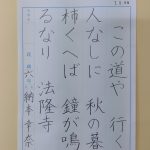 この道や 行く
人なしに 秋の暮
柿くへば 鐘が鳴
るなり 法隆寺
六年